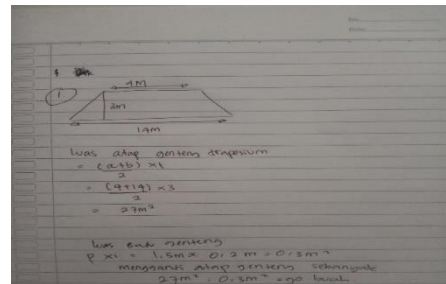 1
4M
3m
14m
Luas atap genteng trapesium
= (a+b) x t
2
= (4+14) x 3
2
= 27m²
Luas genteng
p x l = 1.5m x 0.2m = 0.3m²
mengganti atap genteng sebanyak
27m² : 0.3m² = 90 buah